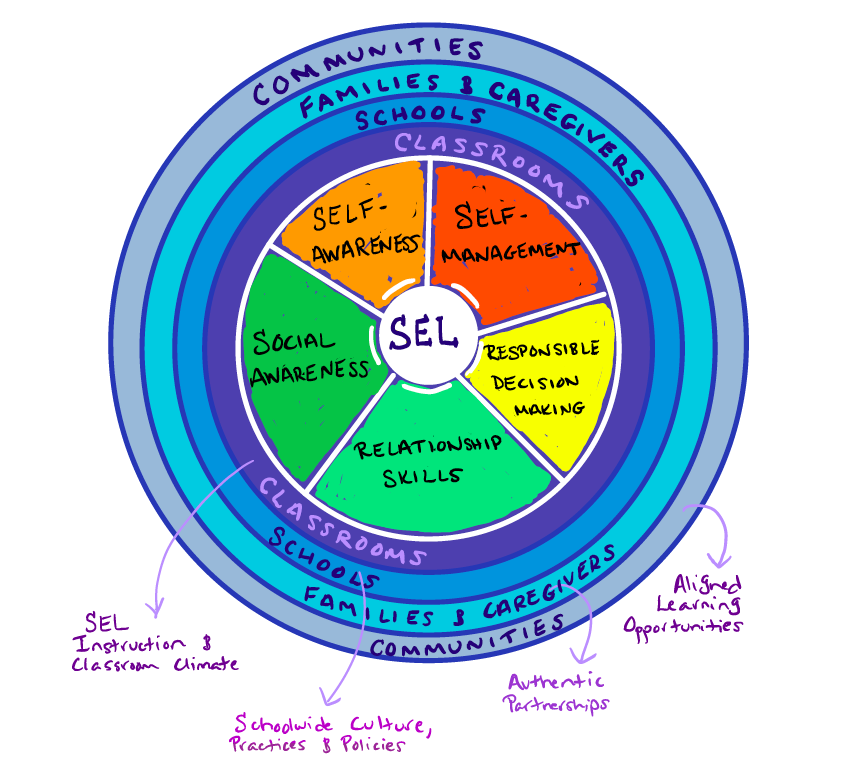 COMMUNITIES
FAMILIES & CAREGIVERS
SCHOOLS
CLASSROOMS
SELF-
AWARENESS
SELF-
MANAGEMENT
SEL
SOCIAL
AWARENESS
RESPONSIBLE
DECISION
MAKING
RELATIONSHIP
SKILLS
CLASSROOMS
SCHOOLS
FAMILIES & CAREGIVERS
COMMUNITIES
SEL
Instruction &
Classroom Climate
Schoolwide Culture,
Practices & Policies
Authentic
Partnerships
Aligned
Learning
Opportunities